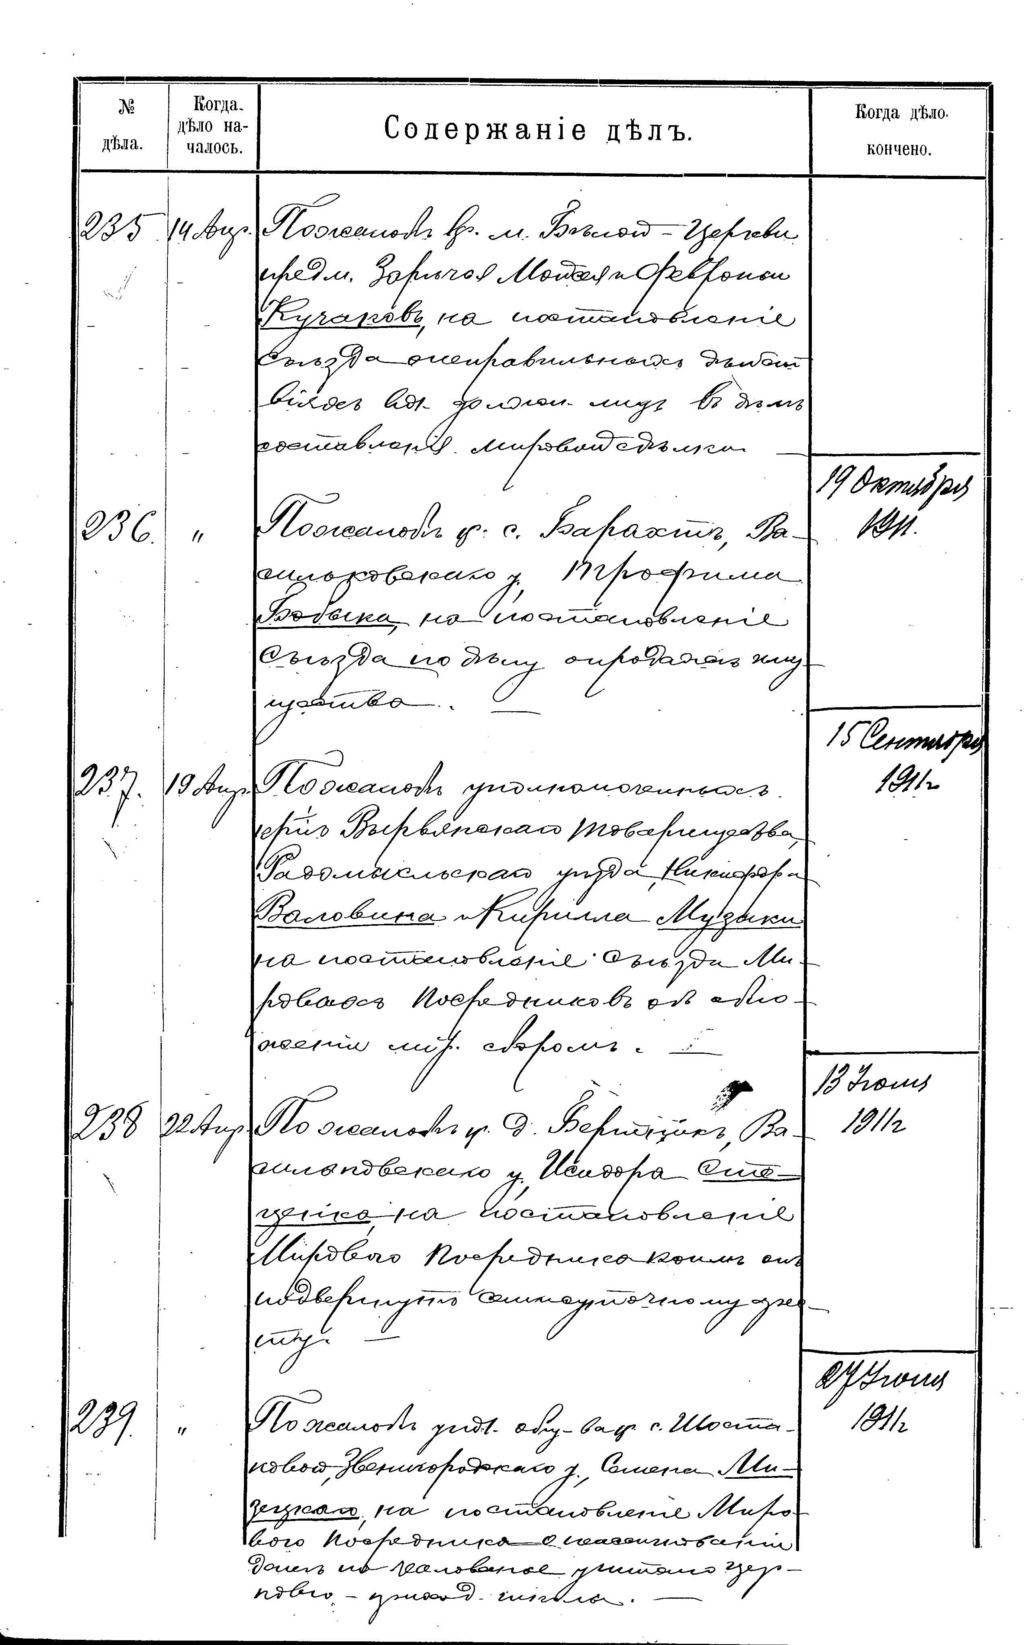 № дѣла.
Когда. дѣло на-чалось.
Содержаніе дѣлъ.
Когда дѣло. кончено.
235. 14 Апр. По жалобѣ кр. м. Бѣлой-Церкви
предм. Зарѣчья Мойсея и Февроніи
Кучаковъ, на постановленіе
Съѣзда о неправильныхъ дѣйст
віяхъ вол. должн. лицъ въ дѣлѣ
составленія мировой сдѣлки
19 Октября
1911.
236. " По жалобѣ кр. с. Барахтъ, Ва-
сильковскаго у., Трофима
Бабыка, на постановленіе
Съѣзда по дѣлу о продажѣ иму
щества. —
15 Сентября
1911 г
237. 19 Апр. По жалобѣ уполномоченныхъ
Вырвянскаго товарищества,
Радомысльскаго уѣзда, Никифора
Валовина и Кирилла Музыки
на постановленіе Съѣзда Ми-
ровыхъ Посредниковъ объ обло-
женіи мір. сборомъ. —
13 Іюня
1911 г
238 22 Апр. По жалобѣ кр. д. Бертники, Ва-
сильковскаго у., Исидора Сте-
ценка, на постановленіе
Мирового Посредника коимъ онъ
подвергнутъ семисуточному аре-
сту. —
27 Іюня
1911 г
239. " По жалобѣ упол. общ-ва кр. с. Шоста-
ковой, Звенигородскаго у., Семена Ми-
зецкаго, на постановленіе Миро-
вого Посредника о
денегъ на жалованье учителю цер-
ковно-приход. школы. —